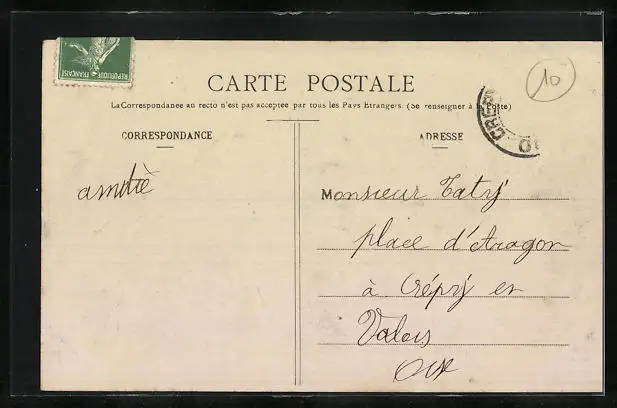 REPUBLIQUE FRANÇAISE
10
CARTE POSTALE
La Correspondance au recto n'est pas acceptée par tous les Pays Etrangers. (Se renseigner à la Poste)
CORRESPONDANCE
ADRESSE
amitiè
Monsieur Tatry
place d'Aragon
à Crépy en
Valois
Oise